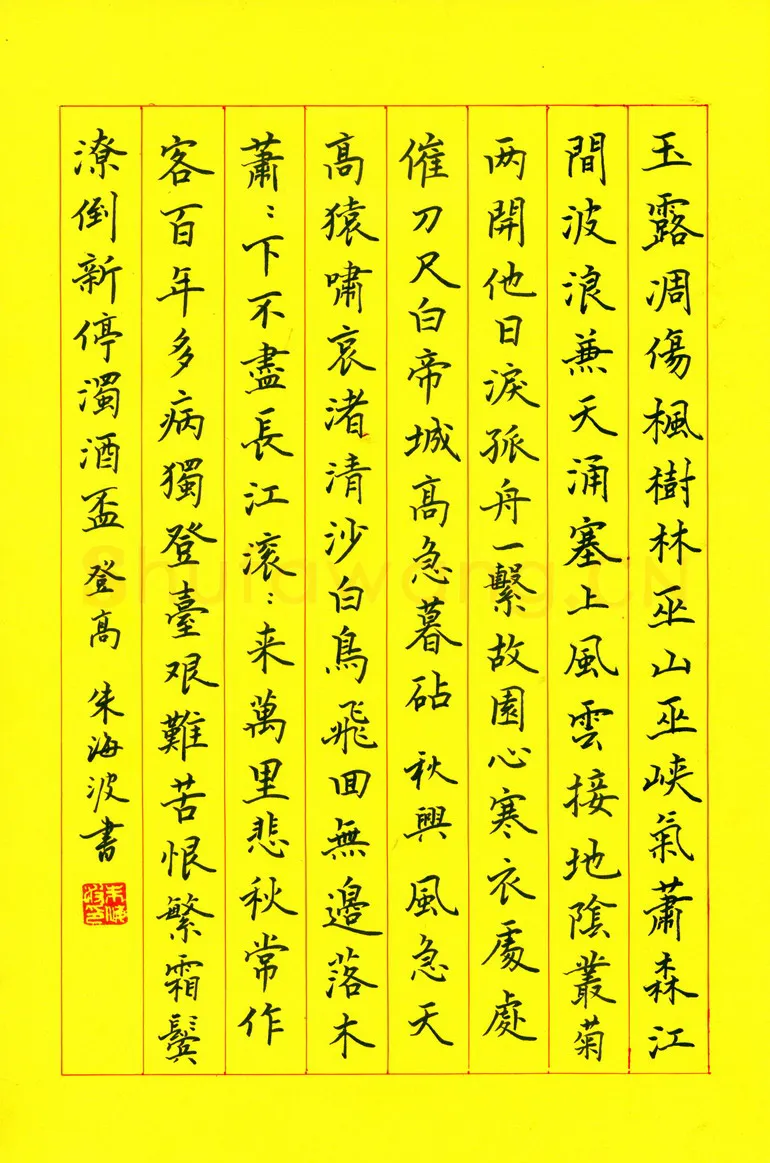 玉露凋傷楓樹林巫山巫峽氣蕭森江
間波浪兼天涌塞上風雲接地陰叢菊
两開他日淚孤舟一繫故園心寒衣處處
催刀尺白帝城高急暮砧 秋興 風急天
高猿嘯哀渚清沙白鳥飛回無邊落木
蕭：下不盡長江滚：来萬里悲秋常作
客百年多病獨登臺艰難苦恨繁霜鬓
潦倒新停濁酒盃 登高 朱海波書
Shufawang.CN